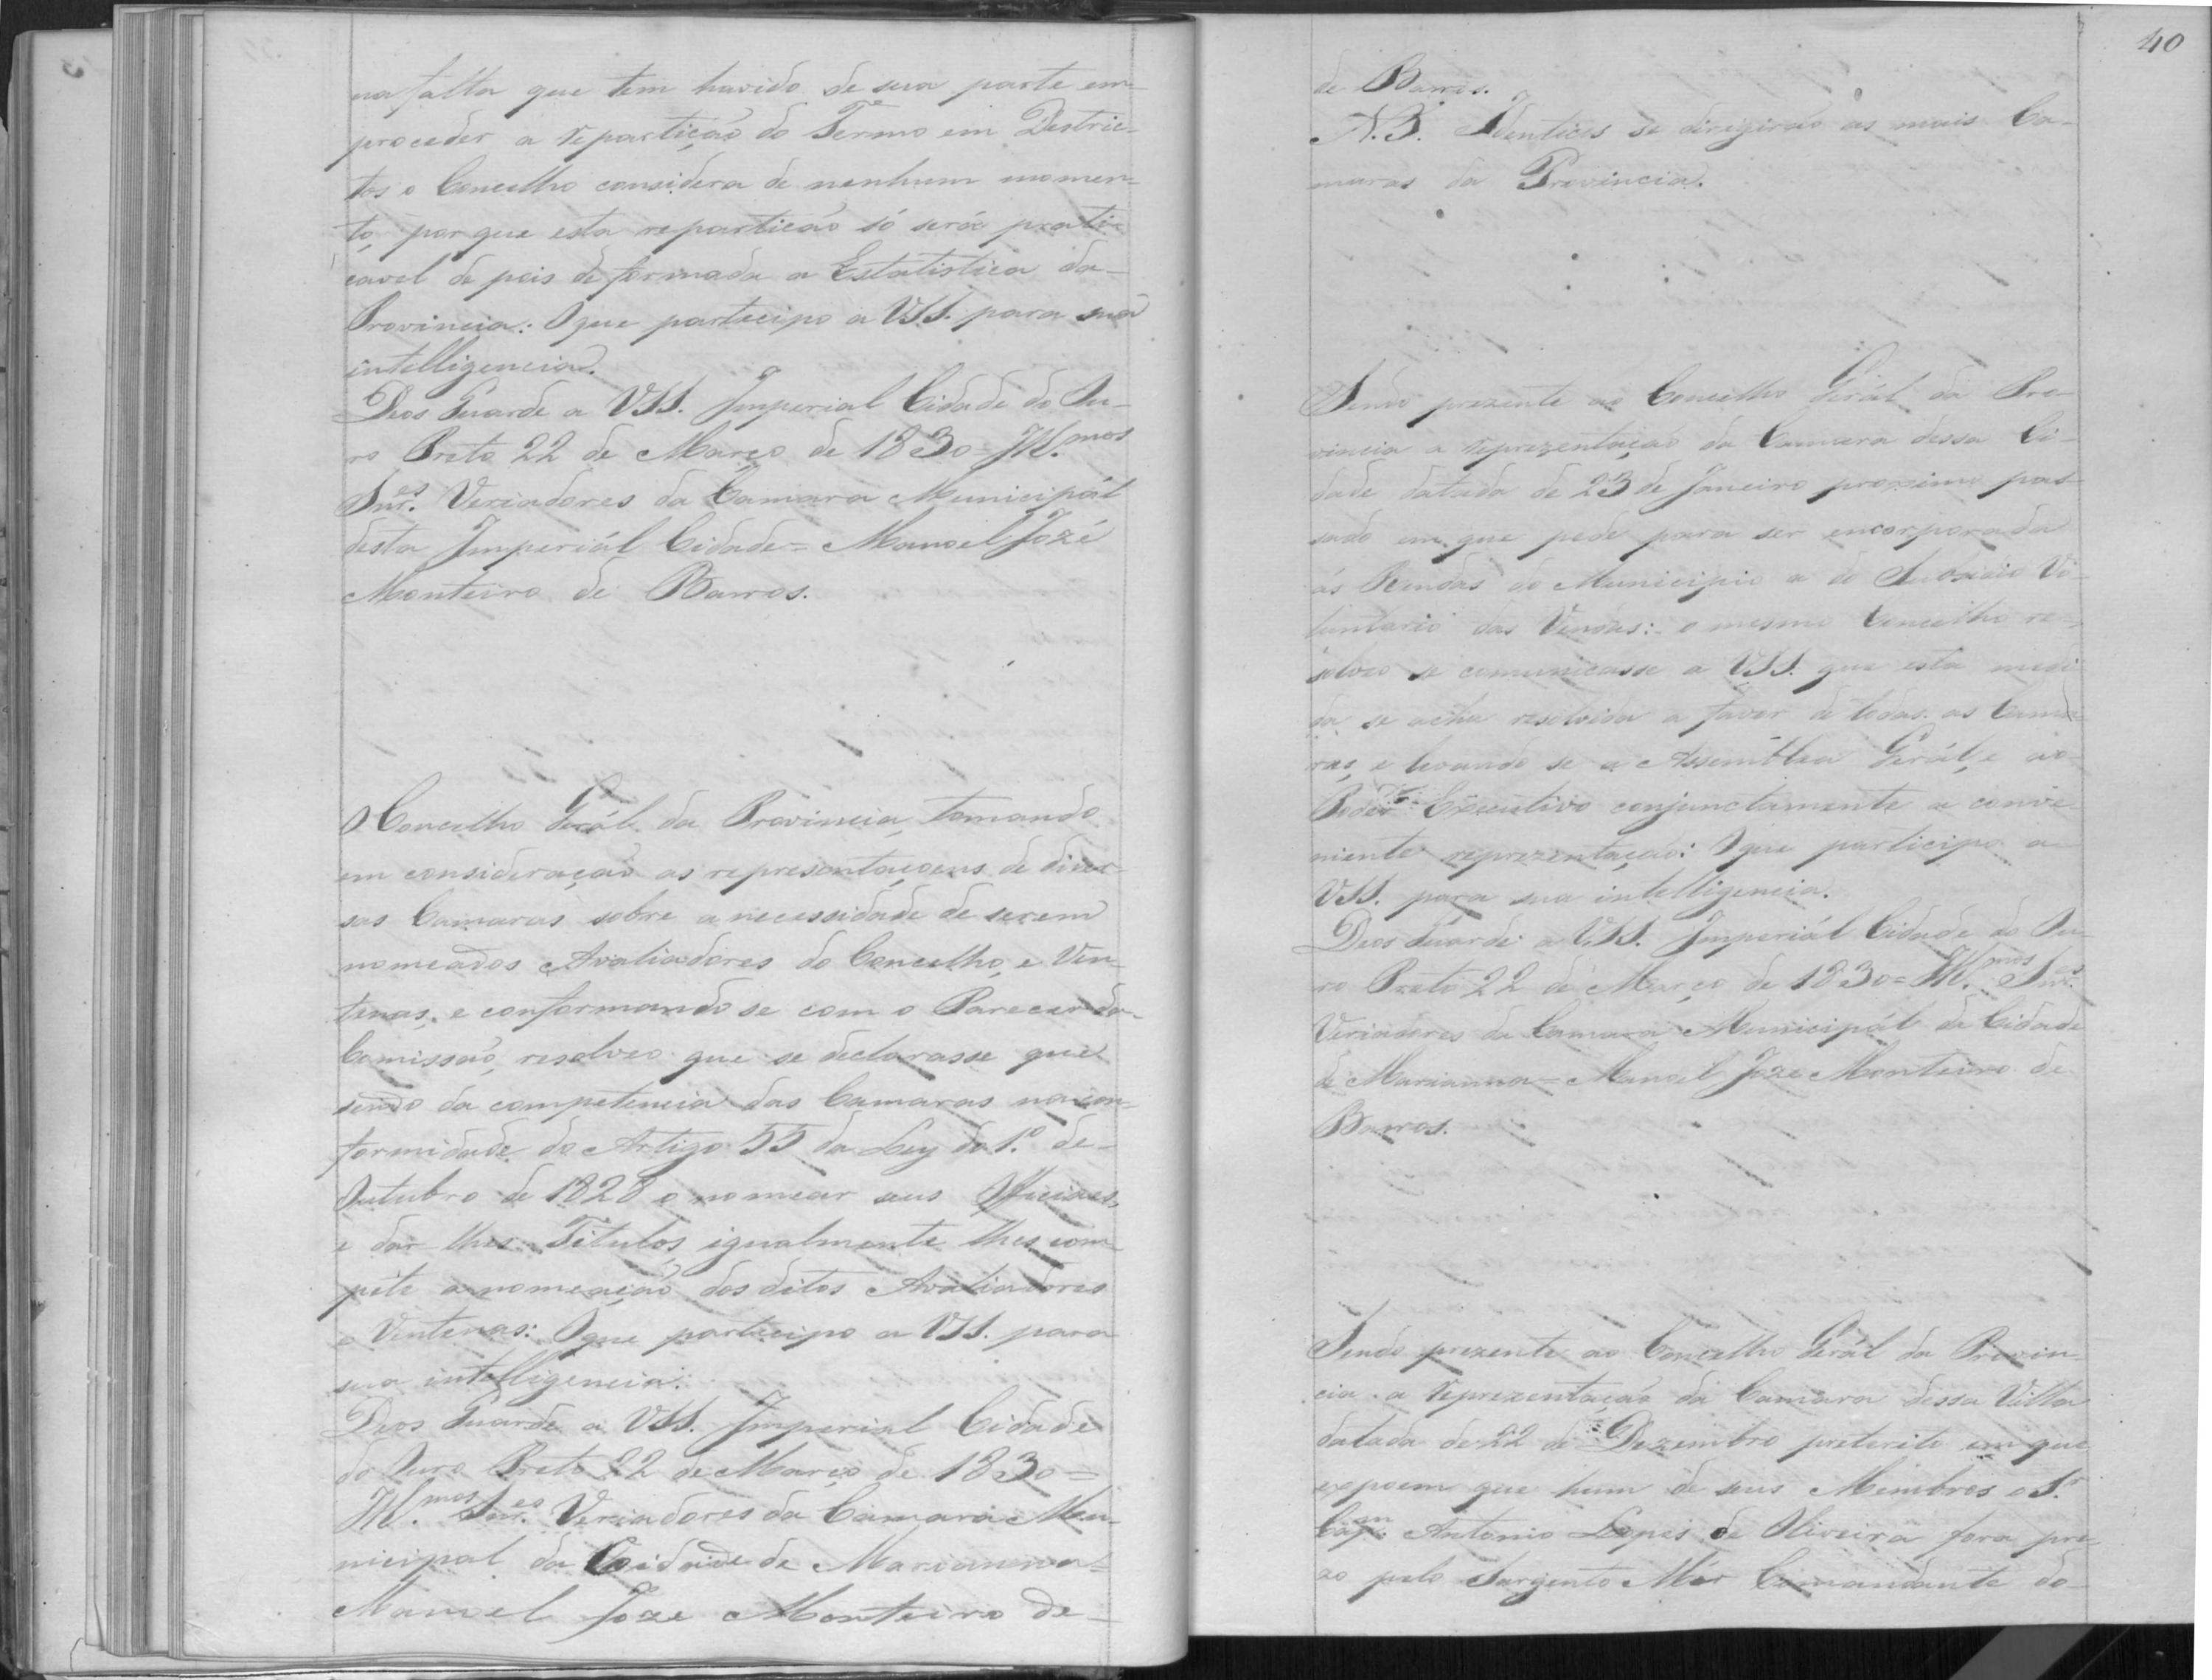 na falta que tem havido de sua parte em
proceder a repartição do Termo em Destric-
tos o Concelho considera de nenhum momen-
to, porque esta repartição só será prati-
cavel de pois de formada a Estatistica da
Provincia: O que participo a VSS. para sua
intelligencia.
Deos Guarde a VSS. Imperial Cidade do Ou-
ro Preto 22 de Março de 1830 = Ill.mos
Snr.es Veriadores da Camara Municipál
desta Imperiál Cidade = Manoel Jozé
Monteiro de Barros.
O Concelho Gerál da Provincia, tomando
em consideração as representaçoens de diver-
sas Camaras sobre a necessidade de serem
nomeados Avaliadores do Concelho, e Ven-
tenas, e conformando se com o Parecer da
Comissaõ, resolveo que se declarasse que
sendo da competencia das Camaras na con-
formidade do Artigo 55 da Ley do 1.º de
Outubro de 1828 o nomear seus Officiaes,
e dar lhes Titulos, igualmente lhes com-
péte a nomeação dos ditos Avaliadores
e Ventenas: O que participo a VSS. para
sua intelligencia.
Deos Guarde a VSS. Imperial Cidade
do Ouro Preto 22 de Março de 1830 =
Ill.mos Snr.es Veriadores da Camara Mu-
nicipal da Cidade de Marianna =
Manoel Joze Monteiro de
40
de Barros.
N.B. Identicos se dirigiraõ as mais Ca-
maras da Provincia.
Sendo prezente ao Concelho Gerál da Pro-
vincia a reprezentaçaõ da Camara dessa Ci-
dade datada de 23 de Janeiro proximo pas-
sado em que pede para ser encorporada
ás Rendas do Municipio a do Subsidio Vo-
luntario das Vendas: o mesmo Concelho re-
solveo se comunicasse a VSS. que esta medi-
da se acha resolvida a favor de todas as Cama-
ras, e levando se a Assemblea Gerál, e ao
Poder Executivo conjunctamente a conve-
niente reprezentaçaõ: O que participo a
VSS. para sua intelligencia.
Deos Guarde a VSS. Imperiál Cidade do Ou-
ro Preto 22 de Março de 1830 = Ill.mos Snr.es
Veriadores da Camara Municipál da Cidade
de Marianna = Manoel Joze Monteiro de
Barros.
Sendo prezente ao Concelho Gerál da Provin-
cia a reprezentaçaõ da Camara dessa Villa
datada de 22 de Dezembro preterito em que
expoem que hum de seus Membros o S.r
Cap.m Antonio Lopes de Oliveira fora pre-
zo pelo Sargento Mór Comandante do